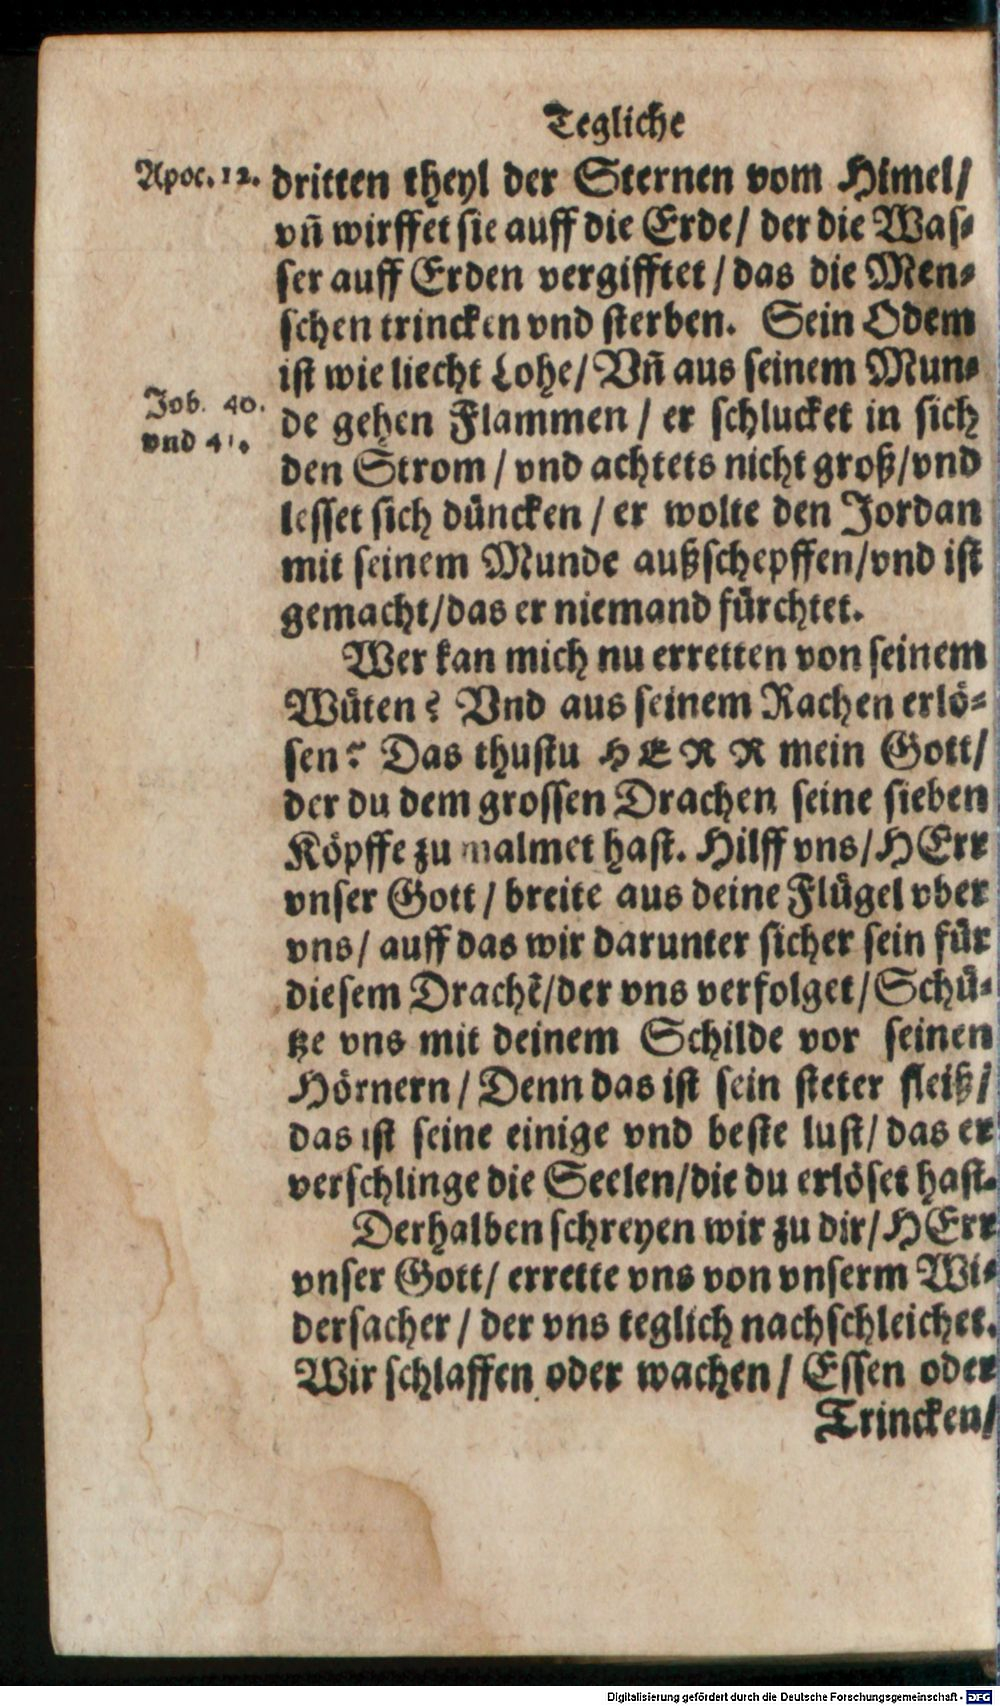 Tegliche
Apoc. 12. dritten theyl der Sternen vom Himel/
vñ wirffet sie auff die Erde/ der die Was-
ser auff Erden vergifftet / das die Men-
schen trincken vnd sterben. Sein Odem
ist wie liecht Lohe/ Vñ aus seinem Mun-
Job. 40. de gehen Flammen / er schlucket in sich
vnd 41. den Strom / vnd achtets nicht groß/vnd
lesset sich düncken / er wolte den Jordan
mit seinem Munde außschepffen/vnd ist
gemacht/das er niemand fürchtet.
Wer kan mich nu erretten von seinem
Wüten? Vnd aus seinem Rachen erlö-
sen? Das thustu HERR mein Gott/
der du dem grossen Drachen seine sieben
Köpffe zu malmet hast. Hilff vns/HErr
vnser Gott / breite aus deine Flügel vber
vns/ auff das wir darunter sicher sein für
diesem Drachẽ/der vns verfolget/Schü-
tze vns mit deinem Schilde vor seinen
Hörnern / Denn das ist sein steter fleiß/
das ist seine einige vnd beste lust/ das er
verschlinge die Seelen/die du erlöset hast.
Derhalben schreyen wir zu dir/HErr
vnser Gott/ errette vns von vnserm Wi-
dersacher / der vns teglich nachschleichet.
Wir schlaffen oder wachen / Essen oder
Trincken/
Digitalisierung gefördert durch die Deutsche Forschungsgemeinschaft - DFG